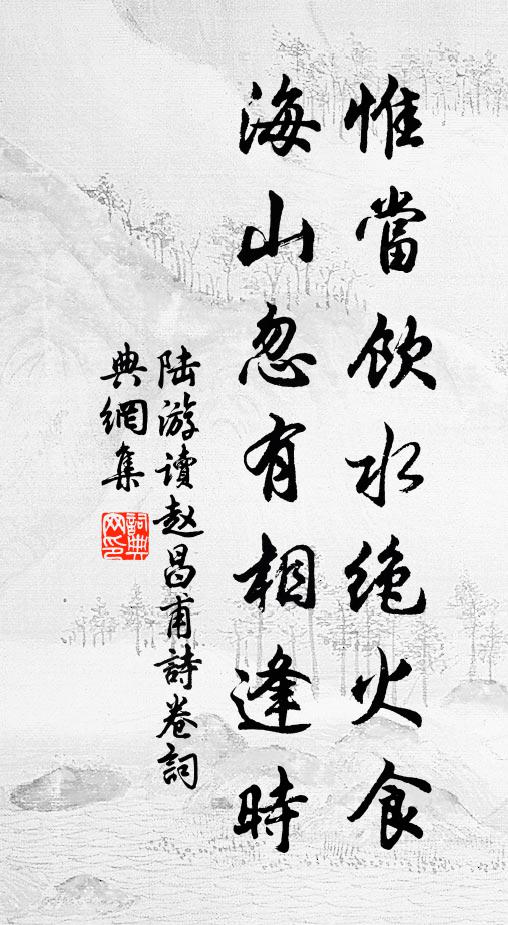 惟當飲水絶火食
海山忽有相逢時
陸游讀赵昌甫詩卷詞
典網集
詞典
网印